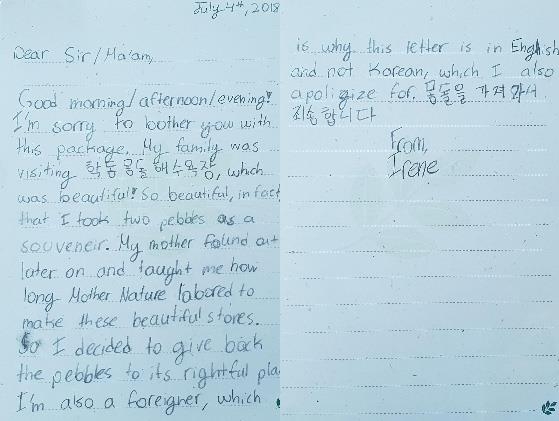 July 4th, 2018
Dear Sir/Ma'am,
Good morning/afternoon/evening!
I'm sorry to bother you with
this package. My family was
visiting 학동 몽돌 해수욕장, which
was beautiful! So beautiful, in fact
that I took two pebbles as a
souveneir. My mother found out
later on and taught me how
long Mother Nature labored to
make these beautiful stones.
So I decided to give back
the pebbles to its rightful pla
I'm also a foreigner, which
is why this letter is in English
and not Korean, which I also
apoligize for. 몽돌을 가져와서
죄송합니다
From,
Irene